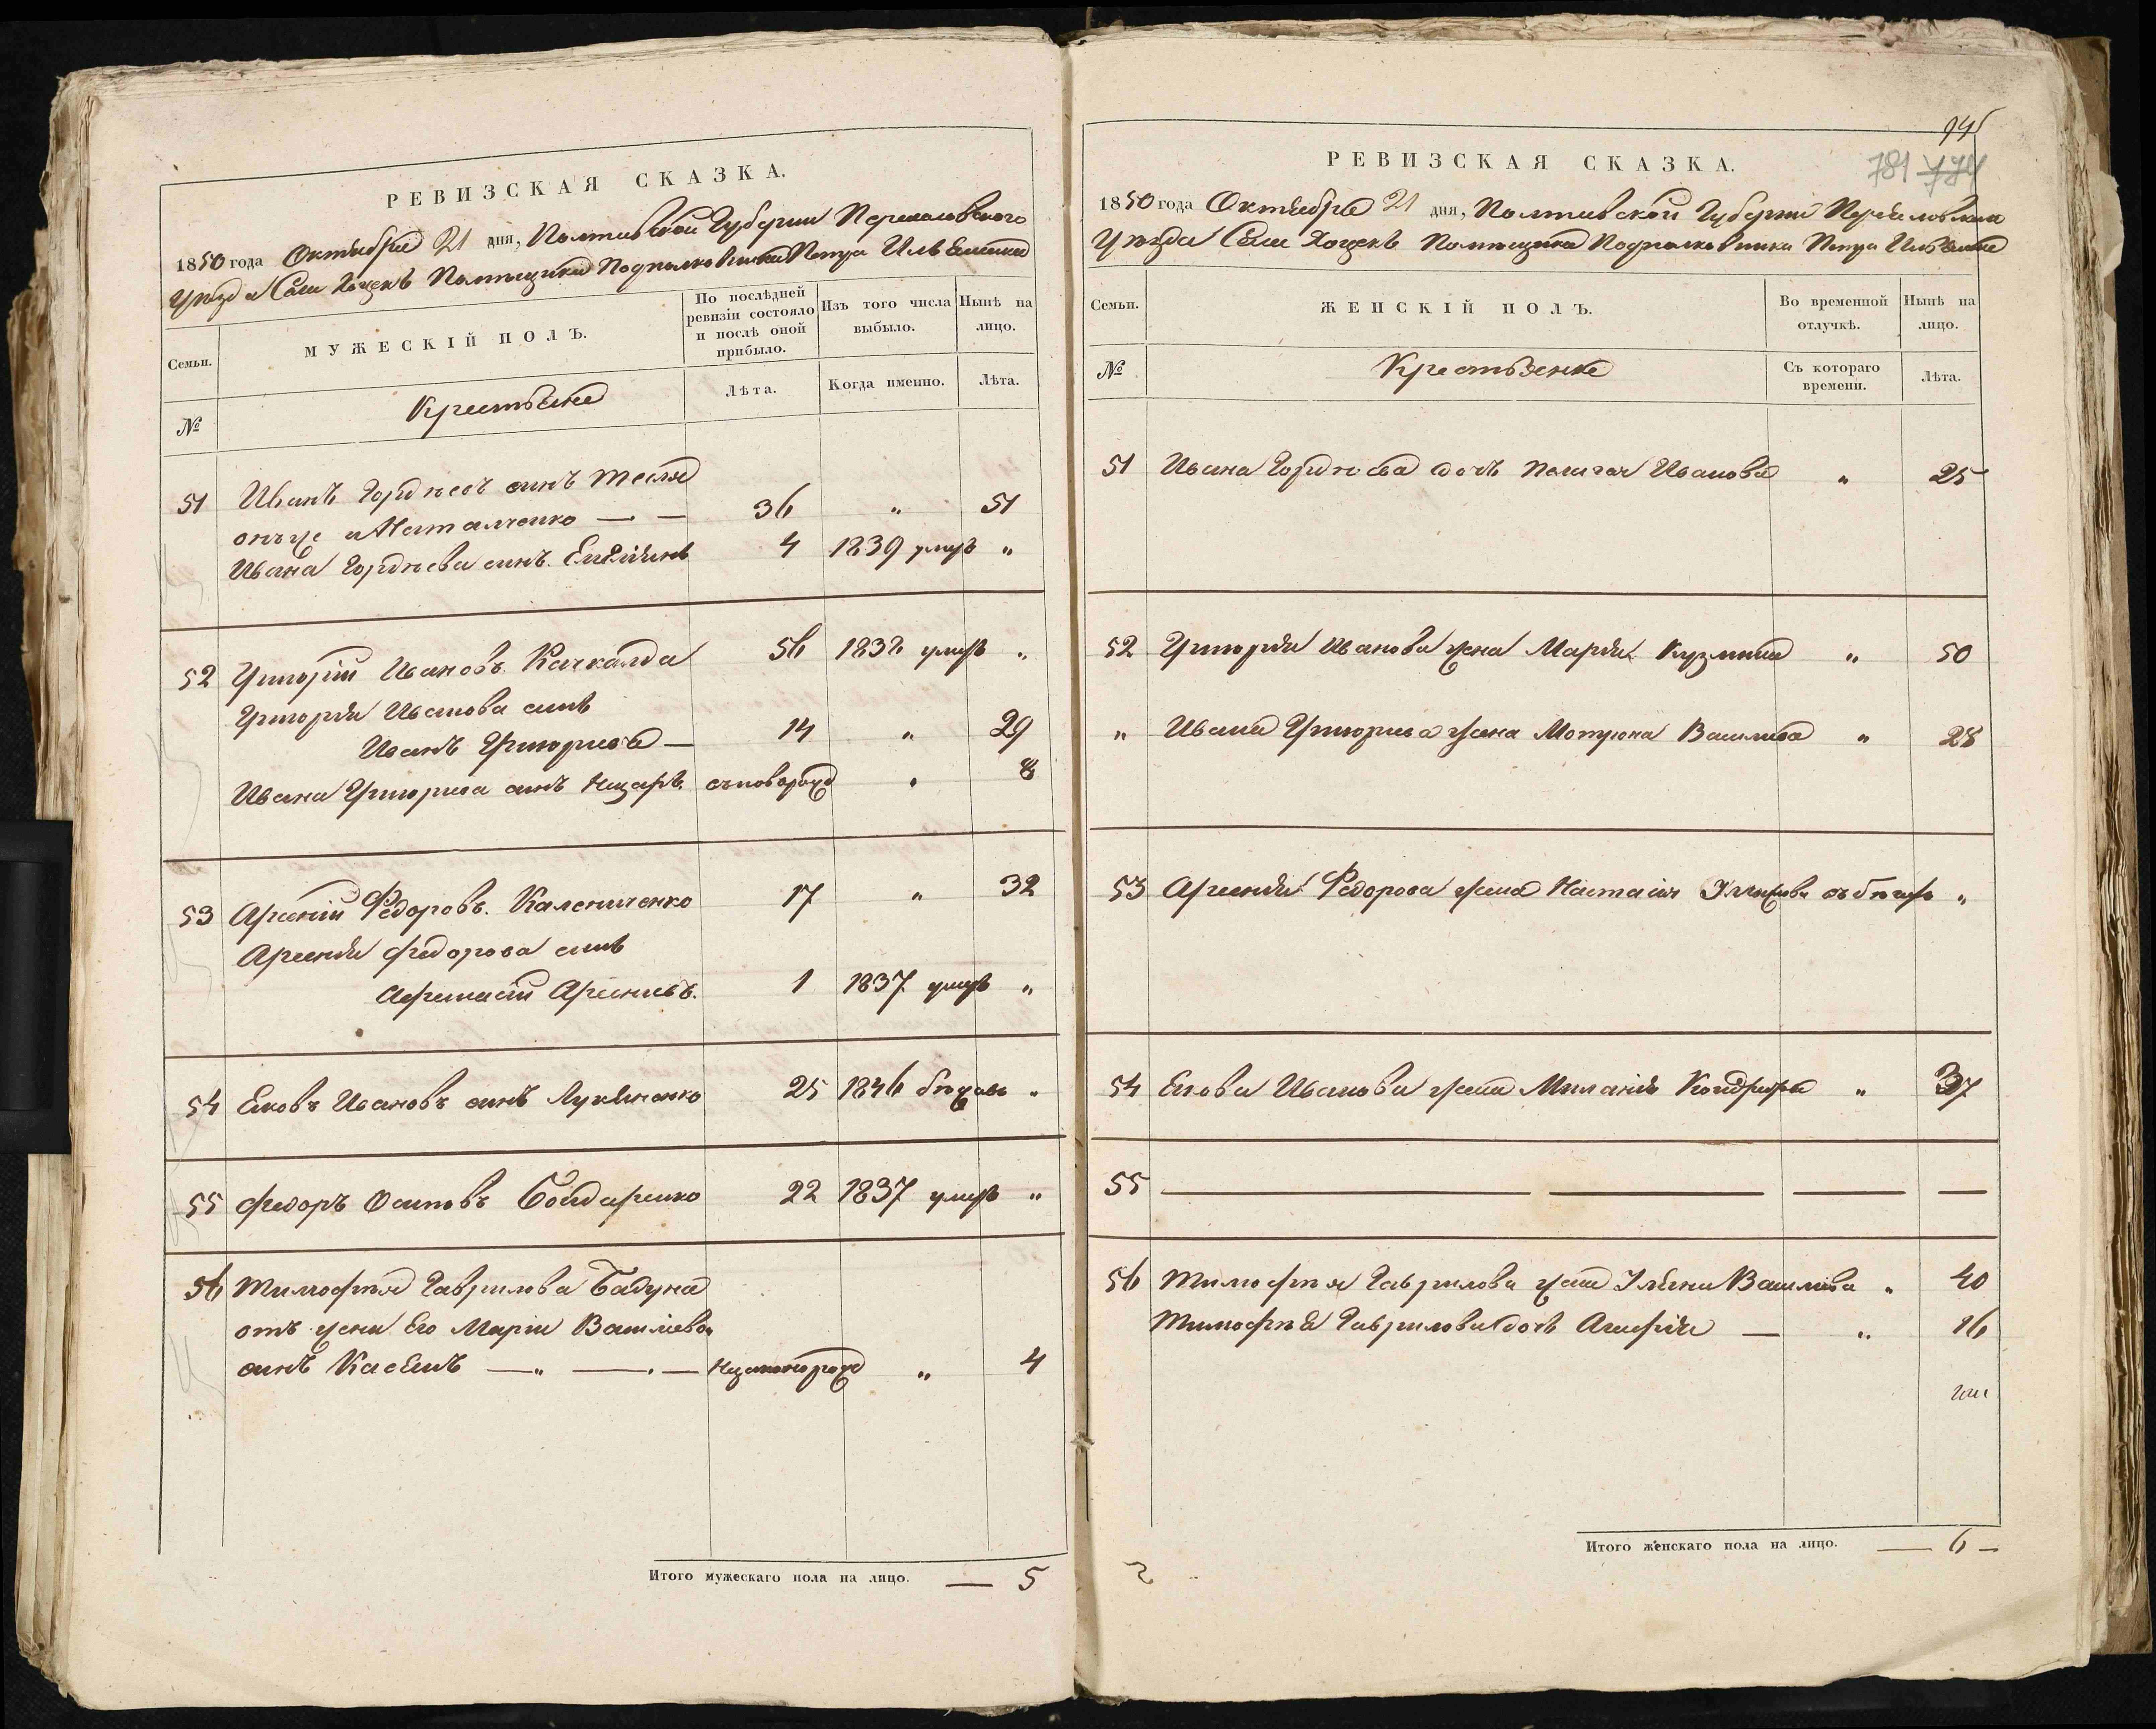 РЕВИЗСКАЯ СКАЗКА.
1850 года Октября 21 дня, Полтавской Губернии Переяславского
Уезда Села Хоцекъ Помещика Подполковника Петра Ильяшенка
Семьи.
МУЖЕСКІЙ ПОЛЪ.
По послѣдней ревизіи состояло и послѣ оной прибыло.
Изъ того числа выбыло.
Нынѣ на лицо.
№
Крестьяне
Лѣта.
Когда именно.
Лѣта.
51 Иванъ Гордѣевъ синъ Тесля
онъ же и Наталченко — — 36 „ 51
Ивана Гордѣева синъ 4 1839 умеръ „
52 Григорій Ивановъ Качкалда 56 1838 умеръ „
Григорія Иванова синъ
Иванъ Григорьевъ — 14 „ 29
Ивана Григорьева синъ Назаръ „ 8
53 Арсеній Федоровъ Калениченко 17 „ 32
Арсенія Федорова синъ
Афанасій Арсеньевъ. 1 1837 умеръ „
54 Яковъ Ивановъ синъ Лукяненко 25 1846 бѣжалъ „
55 Федоръ Осиповъ Бондаренко 22 1837 умеръ „
56 Тимофѣя Гаврилова Бадуна
отъ жены Его Маріи Василіевой
синъ Касянъ — „ — . — „ 4
Итого мужескаго пола на лицо. — 5
945
781 774
РЕВИЗСКАЯ СКАЗКА.
1850 года Октября 21 дня, Полтавской Губерніи Переяславскаго
Уезда Села Хоцекъ Помещика Подполковника Петра Ильяшенка
Семьи.
ЖЕНСКІЙ ПОЛЪ.
Во временной отлучкѣ.
Нынѣ на лицо.
№
Крестьянке
Съ котораго времени.
Лѣта.
51 Ивана Гордѣева дочь Пелагея Иванова „ 25
52 Григорія Иванова жена Марія Кузмина „ 50
„ Ивана Григорьева жена Мотрона Васильева „ 28
53 Арсенія Федорова жена Настасія въ бѣгахъ „
54 Якова Иванова жена Миланія „ 37
55 — — — —
56 Тимофѣя Гаврилова жена Василіева „ 40
Тимофѣя Гаврилова дочь Агафія — „ 16
Итого женскаго пола на лицо. — 6 —